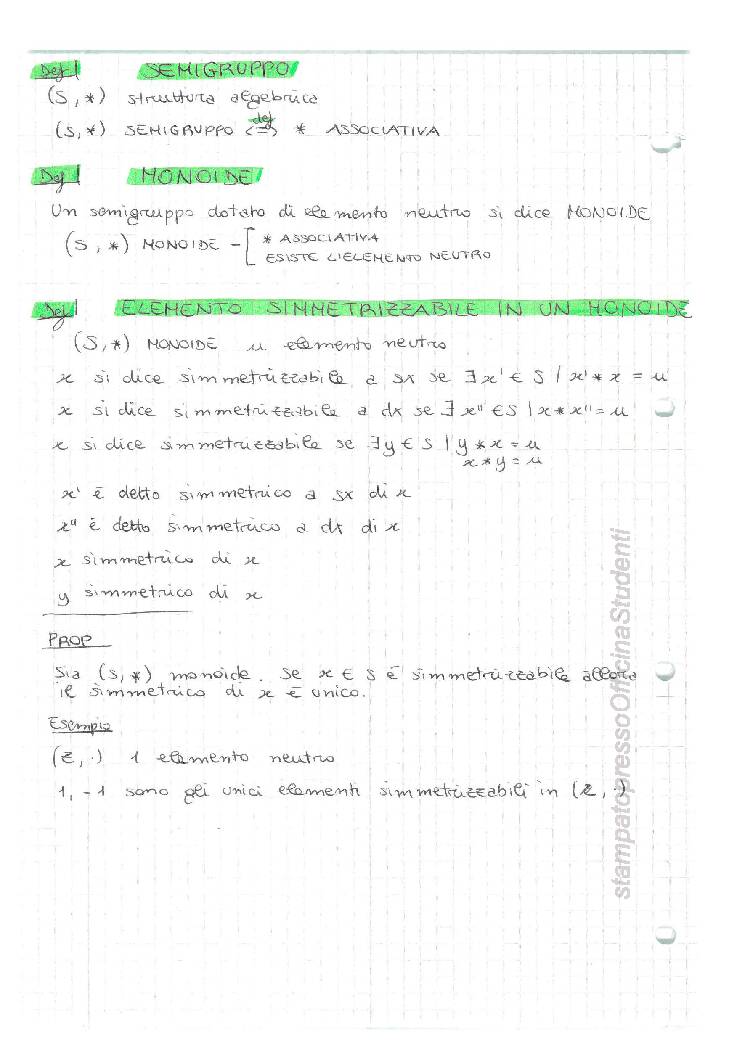 Def SEMIGRUPPO
(S, *) struttura algebrica
(S, *) SEMIGRUPPO <=> def * ASSOCIATIVA
Def MONOIDE
Un semigruppo dotato di elemento neutro si dice MONOIDE
(S, *) MONOIDE - [ * ASSOCIATIVA
ESISTE L'ELEMENTO NEUTRO
Def ELEMENTO SIMMETRIZZABILE IN UN MONOIDE
(S, *) MONOIDE u elemento neutro
x si dice simmetrizzabile a sx se ∃ x' ∈ S | x' * x = u
x si dice simmetrizzabile a dx se ∃ x'' ∈ S | x * x'' = u
x si dice simmetrizzabile se ∃ y ∈ S | y * x = u
x * y = u
x' è detto simmetrico a sx di x
x'' è detto simmetrico a dx di x
x simmetrico di x
y simmetrico di x
PROP
Sia (S, *) monoide. Se x ∈ S è simmetrizzabile allora
il simmetrico di x è unico.
Esempio
(Z, ·) 1 elemento neutro
1, -1 sono gli unici elementi simmetrizzabili in (Z, ·)
stampatopressoOfficinaStudenti